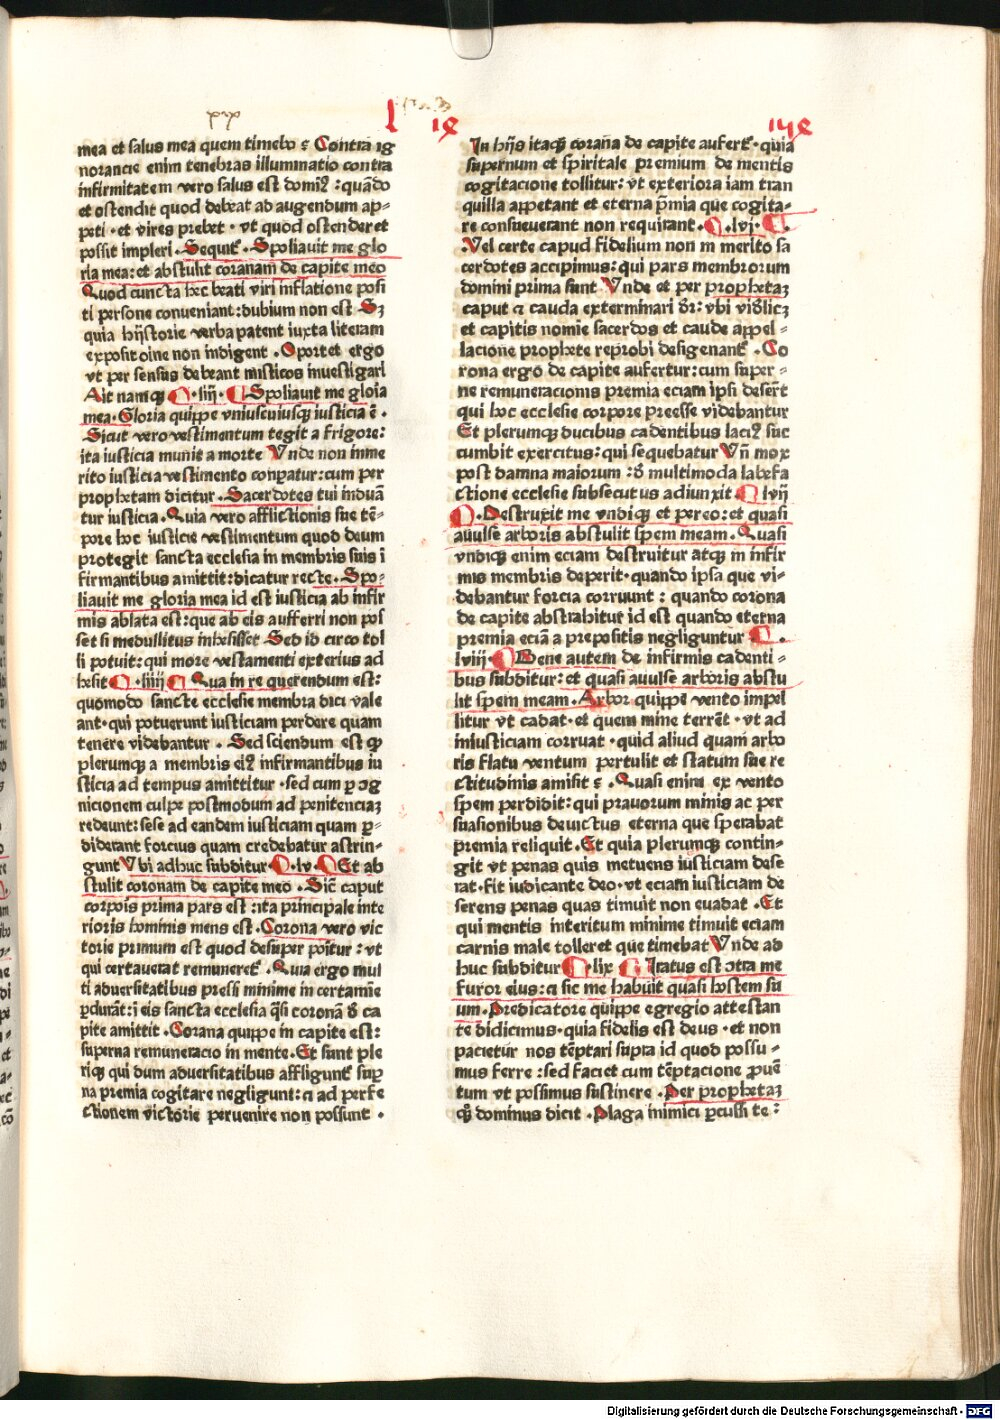 l ix iiiix
mea et salus mea quem timebo ς Contra ig
norancie enim tenebras illuminatio contra
infirmitatem vero salus est domiꝰ : quādo
et ostendit quod debeat ad augendum ap-
peti · et vires prebet · vt quod ostender et
possit impleri . Sequit᷑ . Spoliauit me glo
ria mea: et abstulit coranam de capite meo
Quod cuncta hec beati viri inflatione posi
ti persone conueniant: dubium non est Sꝫ
quia hijstorie verba patent iuxta literam
exposit oine non indigent . Oportet ergo
vt per sensus debeant misticos inuestigari
Ait namqꝫ · liij · Spoliauit me gloia
mea . Gloria quippe vniuscuiusqꝫ iusticia ē .
Sicut vero vestimentum tegit a frigore:
ita iusticia munit a morte Vnde non inme
rito iusticia vestimento conparatur: cum per
prophetam dicitur . Sacerdotes tui induā
tur iusticia . Quia vero afflictionis sue tē-
pore hoc iusticie vestimentum quod deum
protegit sancta ecclesia in membris suis i
firmantibus amittit: dicatur recte . Spo-
liauit me gloria mea id est iusticia ab infir
mis ablata est: que ab eis aufferri non pos
set si medullitus inhesisset Sed id circo tol
li potuit: qui more vestamenti exterius ad
hesit · liiij Qua in re querendum est:
quomodo sancte ecclesie membra dici vale
ant · qui potuerunt iusticiam perdere quam
tenere videbantur . Sed sciendum est qꝫ
plerumqꝫ a membris eiꝰ infirmantibus iu
sticia ad tempus amittitur · sed cum p ↄg
nicionem culpe postmodum ad penitenciaꝫ
redeunt: sese ad eandem iusticiam quam p-
diderant forcius quam credebatur astrin-
gunt Vbi adhuc subditur · lv · Et ab
stulit coronam de capite meo . Sic̄ caput
corpois prima pars est : ita principale inte
rioris hominis mens est . Corona vero vic
torie primum est quod desuper poītur : vt
qui certauerat remuneret᷑ . Quia ergo mul
ti aduersitatibus pressi minime in certamīe
ꝑdurāt: i eis sancta ecclesia q̄si coronā ð ca
pite amittit . Corana quippe in capite est:
superna remuneracio in mente . Et sunt ple
riqꝫ qui dum aduersitatibus affligunt᷑ sup
na premia cogitare negligunt: a ad perfe
ctionem victorie peruenire non possunt .
In hijs itaqꝫ corana de capite aufert᷑ · quia
supernum et spiritale premium de mentis
cogitacione tollitur: vt exteriora iam tran
quilla appetant et eterna p̄mia que cogita-
re consueuerant non requirant . · lvj ·
. Vel certe capud fidelium non in merito sa
cerdotes accipimus: qui pars membrorum
domini prima sunt Vnde et per prophetaꝫ
caput a cauda exterminari dr̄: vbi videlicꝫ
et capitis nomie sacerdos et caude appel-
lacione prophete reprobi designant᷑ . Co
rona ergo de capite aufertur: cum super-
ne remuneracionis premia eciam ipsi deserūt
qui hoc ecclesie corpore preesse videbantur
Et plerumqꝫ ducibus cadentibus laciꝰ suc
cumbit exercitus: qui sequebatur Vn̄ mox
post damna maiorum : ð multimoda labefa
ctione ecclesie subsecutus adiunxit lvij
. Destruxit me vndiqꝫ et pereo: et quasi
auulse arboris abstulit spem meam . Quasi
vndiqꝫ enim eciam destruitur atqꝫ in infir
mis membris deperit · quando ipsa que vi-
debantur forcia corruunt : quando corona
de capite abstrahitur id est quando eterna
premia eciā a prepositis negliguntur .
lviij Bene autem de infirmis cadenti-
bus subditur: et quasi auulse arboris abstu
lit spem meam . Arbor quippe vento impel
litur vt cadat · et quem mine terrēt · vt ad
iniusticiam corruat · quid aliud quam arbo
ris flatu ventum pertulit et statum sue re
ctitudinis amisit ς . Quasi enim ex vento
spem perdidit: qui prauorum minis ac per
suasionibus deuictus eterna que sperabat
premia reliquit . Et quia plerumqꝫ contin-
git vt penas quis metuens iusticiam dese
rat · fit iudicante deo · vt eciam iusticiam de
serens penas quas timuit non euadat . Et
qui mentis interitum minime timuit eciam
carnis male tolleret que timebat Vnde ad
huc subditur lix Iratus est ↄtra me
furor eius: a sic me habuit quasi hostem su
um . Predicatore quippe egregio attestan
te didicimus · quia fidelis est deus · et non
pacietur nos tēptari supra id quod possu-
mus ferre : sed faciet cum tēptacione ꝓuē
tum vt possimus sustinere . Per prophetaꝫ
qꝫ dominus dicit . Plaga inimici percussi te :
Digitalisierung gefördert durch die Deutsche Forschungsgemeinschaft - DFG